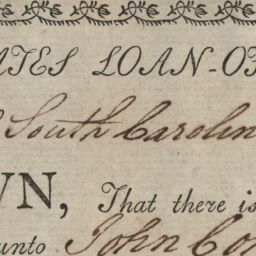 ATES LOAN-O
South Carolin
WN, That there is
unto John Co